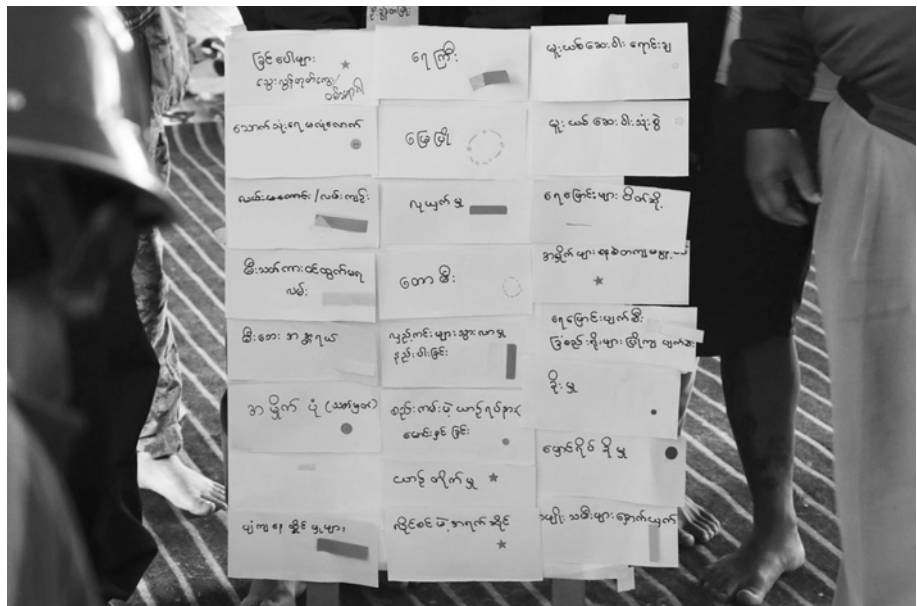 ခြင်ပေါများ
သွေးလွန်တုတ်ကွေး/
ဝမ်းရောဂါ
သောက်သုံးရေ မလုံလောက်
လမ်းမကောင်း/လမ်းကျဉ်း
မီးသတ်ကား ဝင်ထွက်မရ
လမ်း
မီးဘေး အန္တရာယ်
အမှိုက် ပုံ (သတ်မှတ်)
ပျံကျ နေ
ရေကြီး
မြေပြို
လုယက်မှု
တောမီး
လှည့်ကင်းများသွားလာမှု
နည်းပါးခြင်း
စည်းကမ်းမဲ့ ယာဉ်ရပ်နား/
မောင်းနှင်ခြင်း
ယာဉ်တိုက်မှု
လိုင်စင်မဲ့အရက်ဆိုင်
မူးယစ်ဆေးဝါး ရောင်းချ
မူးယစ်ဆေးဝါးသုံးစွဲ
ရေမြောင်းများ ပိတ်ဆို့
အမှိုက်များ စနစ်တကျ မစွန့်
ရေမြောင်းပျက်စီး
ခြံစည်းရိုးများ ပြိုကျ ပျက်စီး
ခိုးမှု
မှောင်ရိပ်ခိုမှု
အမျိုးသမီးများနှောက်ယှက်